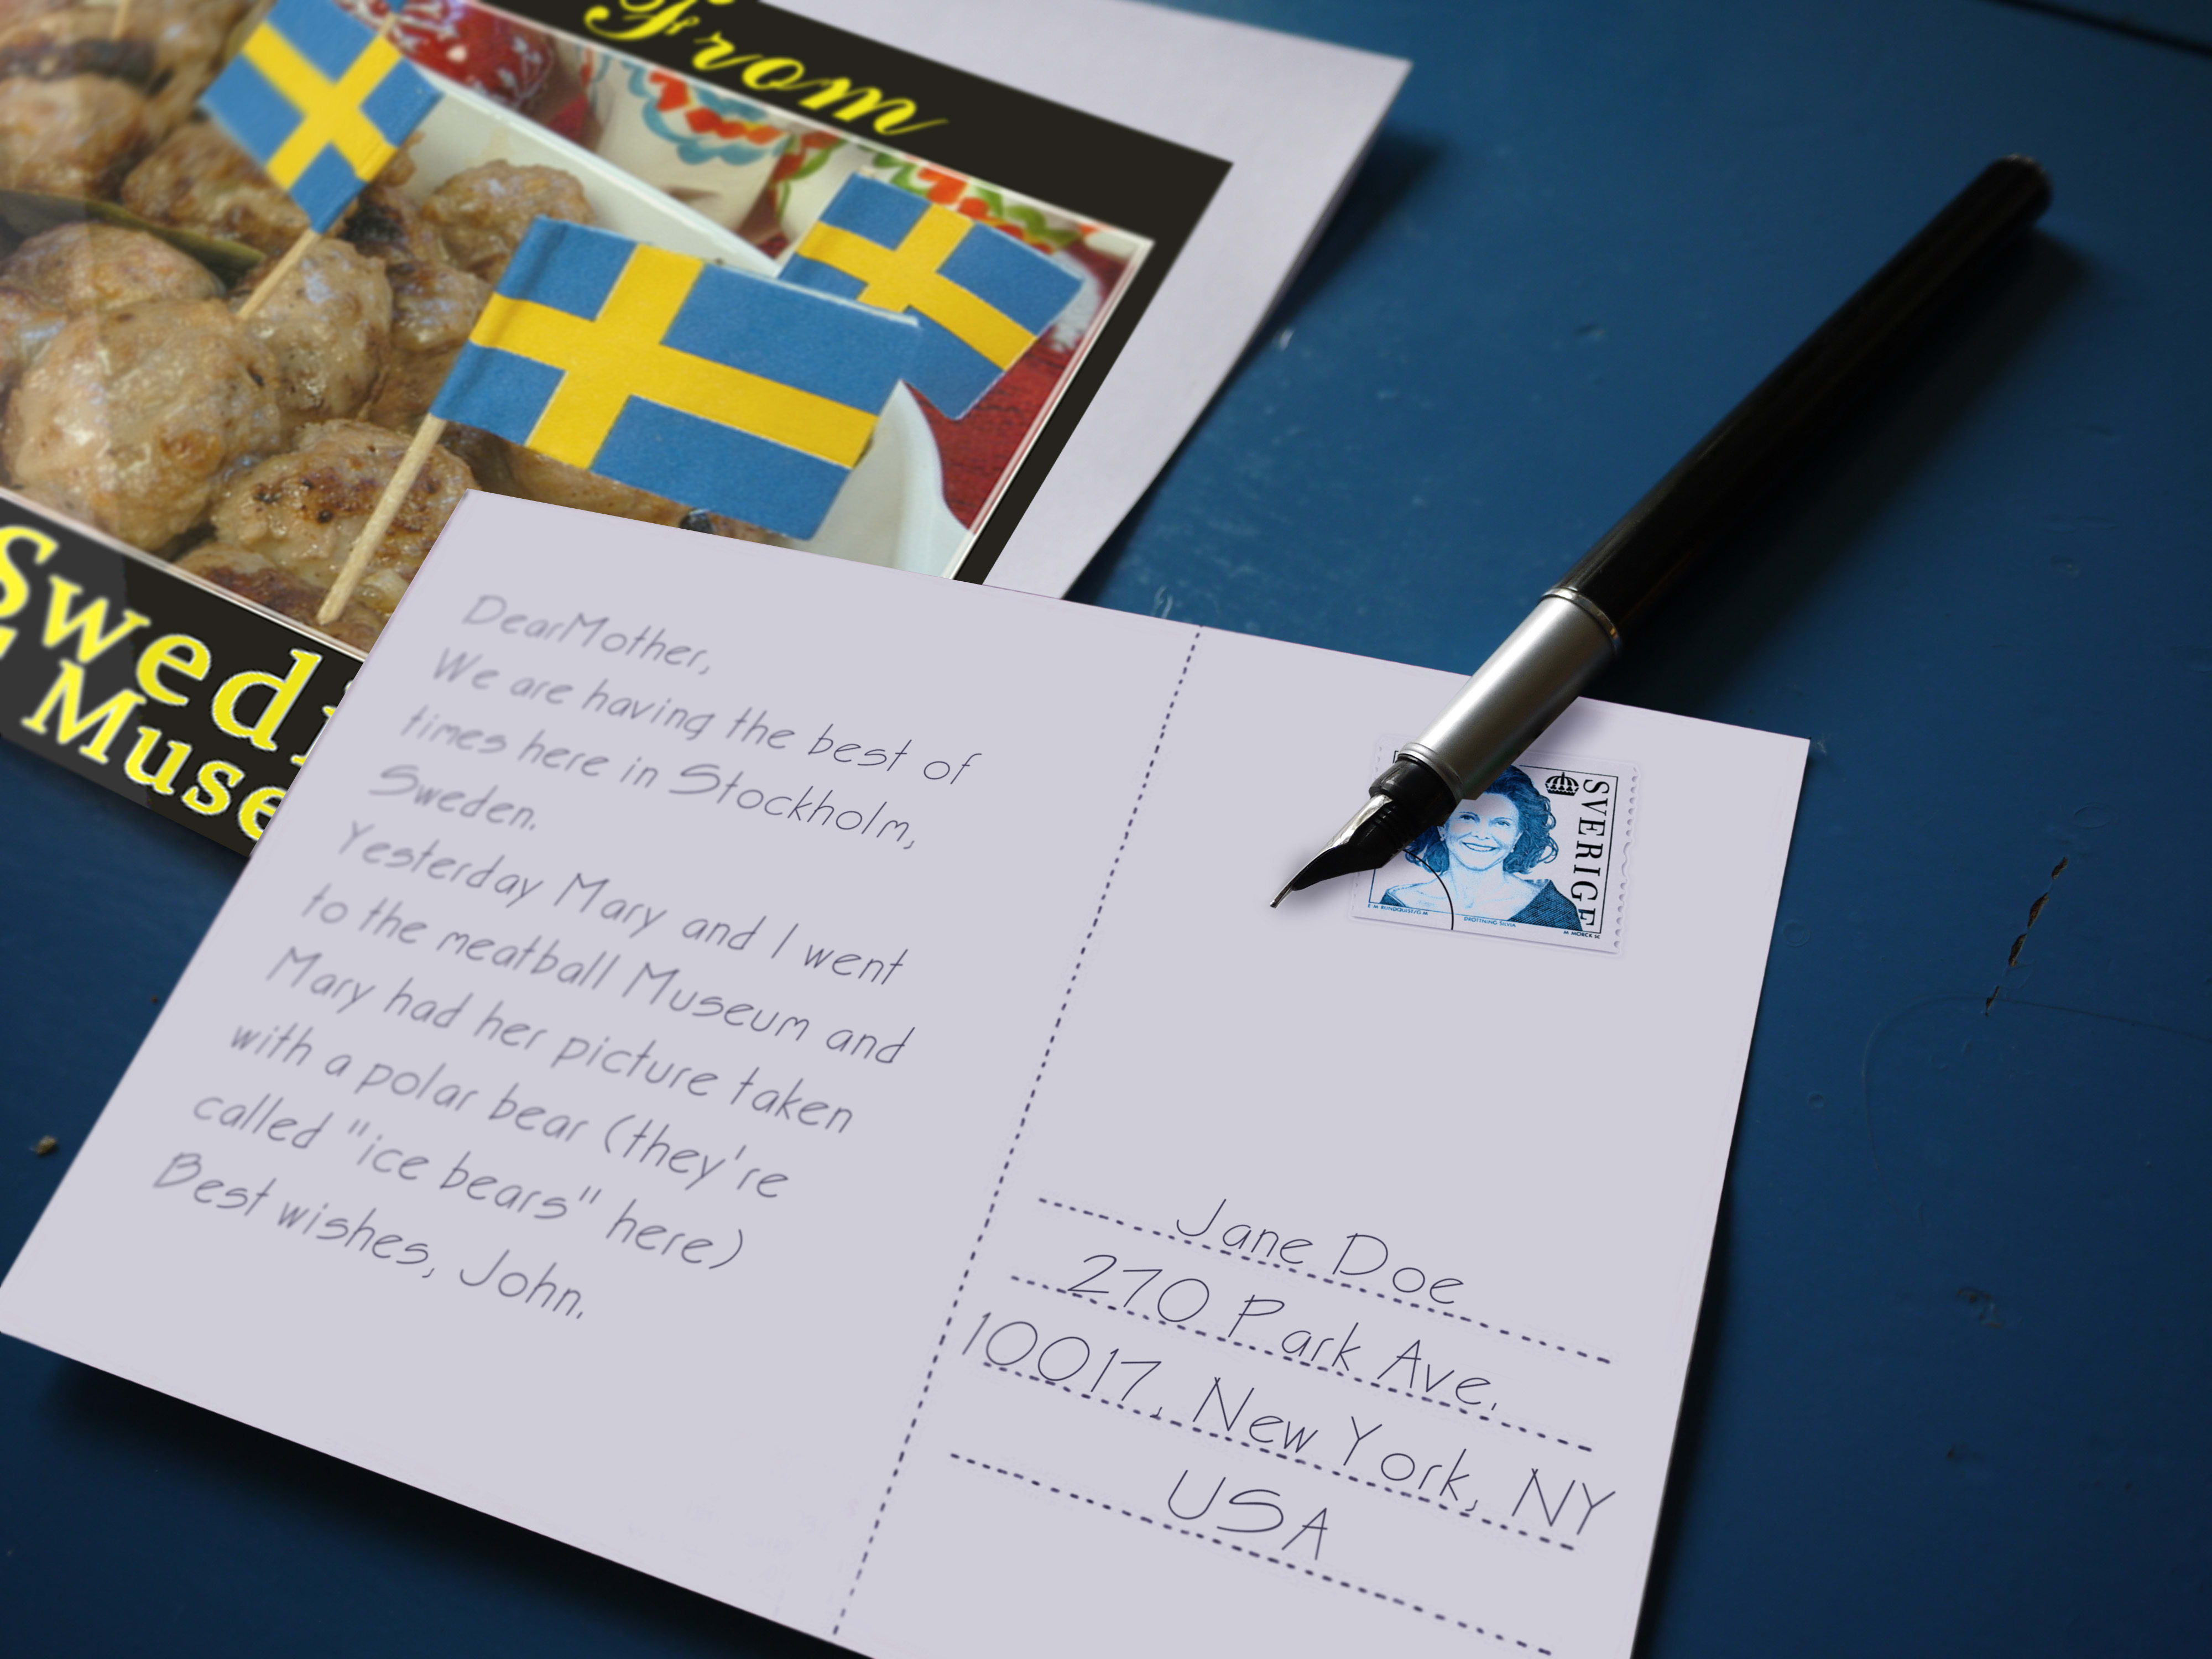 From
Swedi
Muse
DearMother,
We are having the best of
times here in Stockholm,
Sweden.
Yesterday Mary and I went
to the meatball Museum and
Mary had her picture taken
with a polar bear (they're
called "ice bears" here)
Best wishes, John.
SVERIGE
DROTTNING SILVIA
M MÖRCK SC
Jane Doe
270 Park Ave.
10017, New York, NY
USA